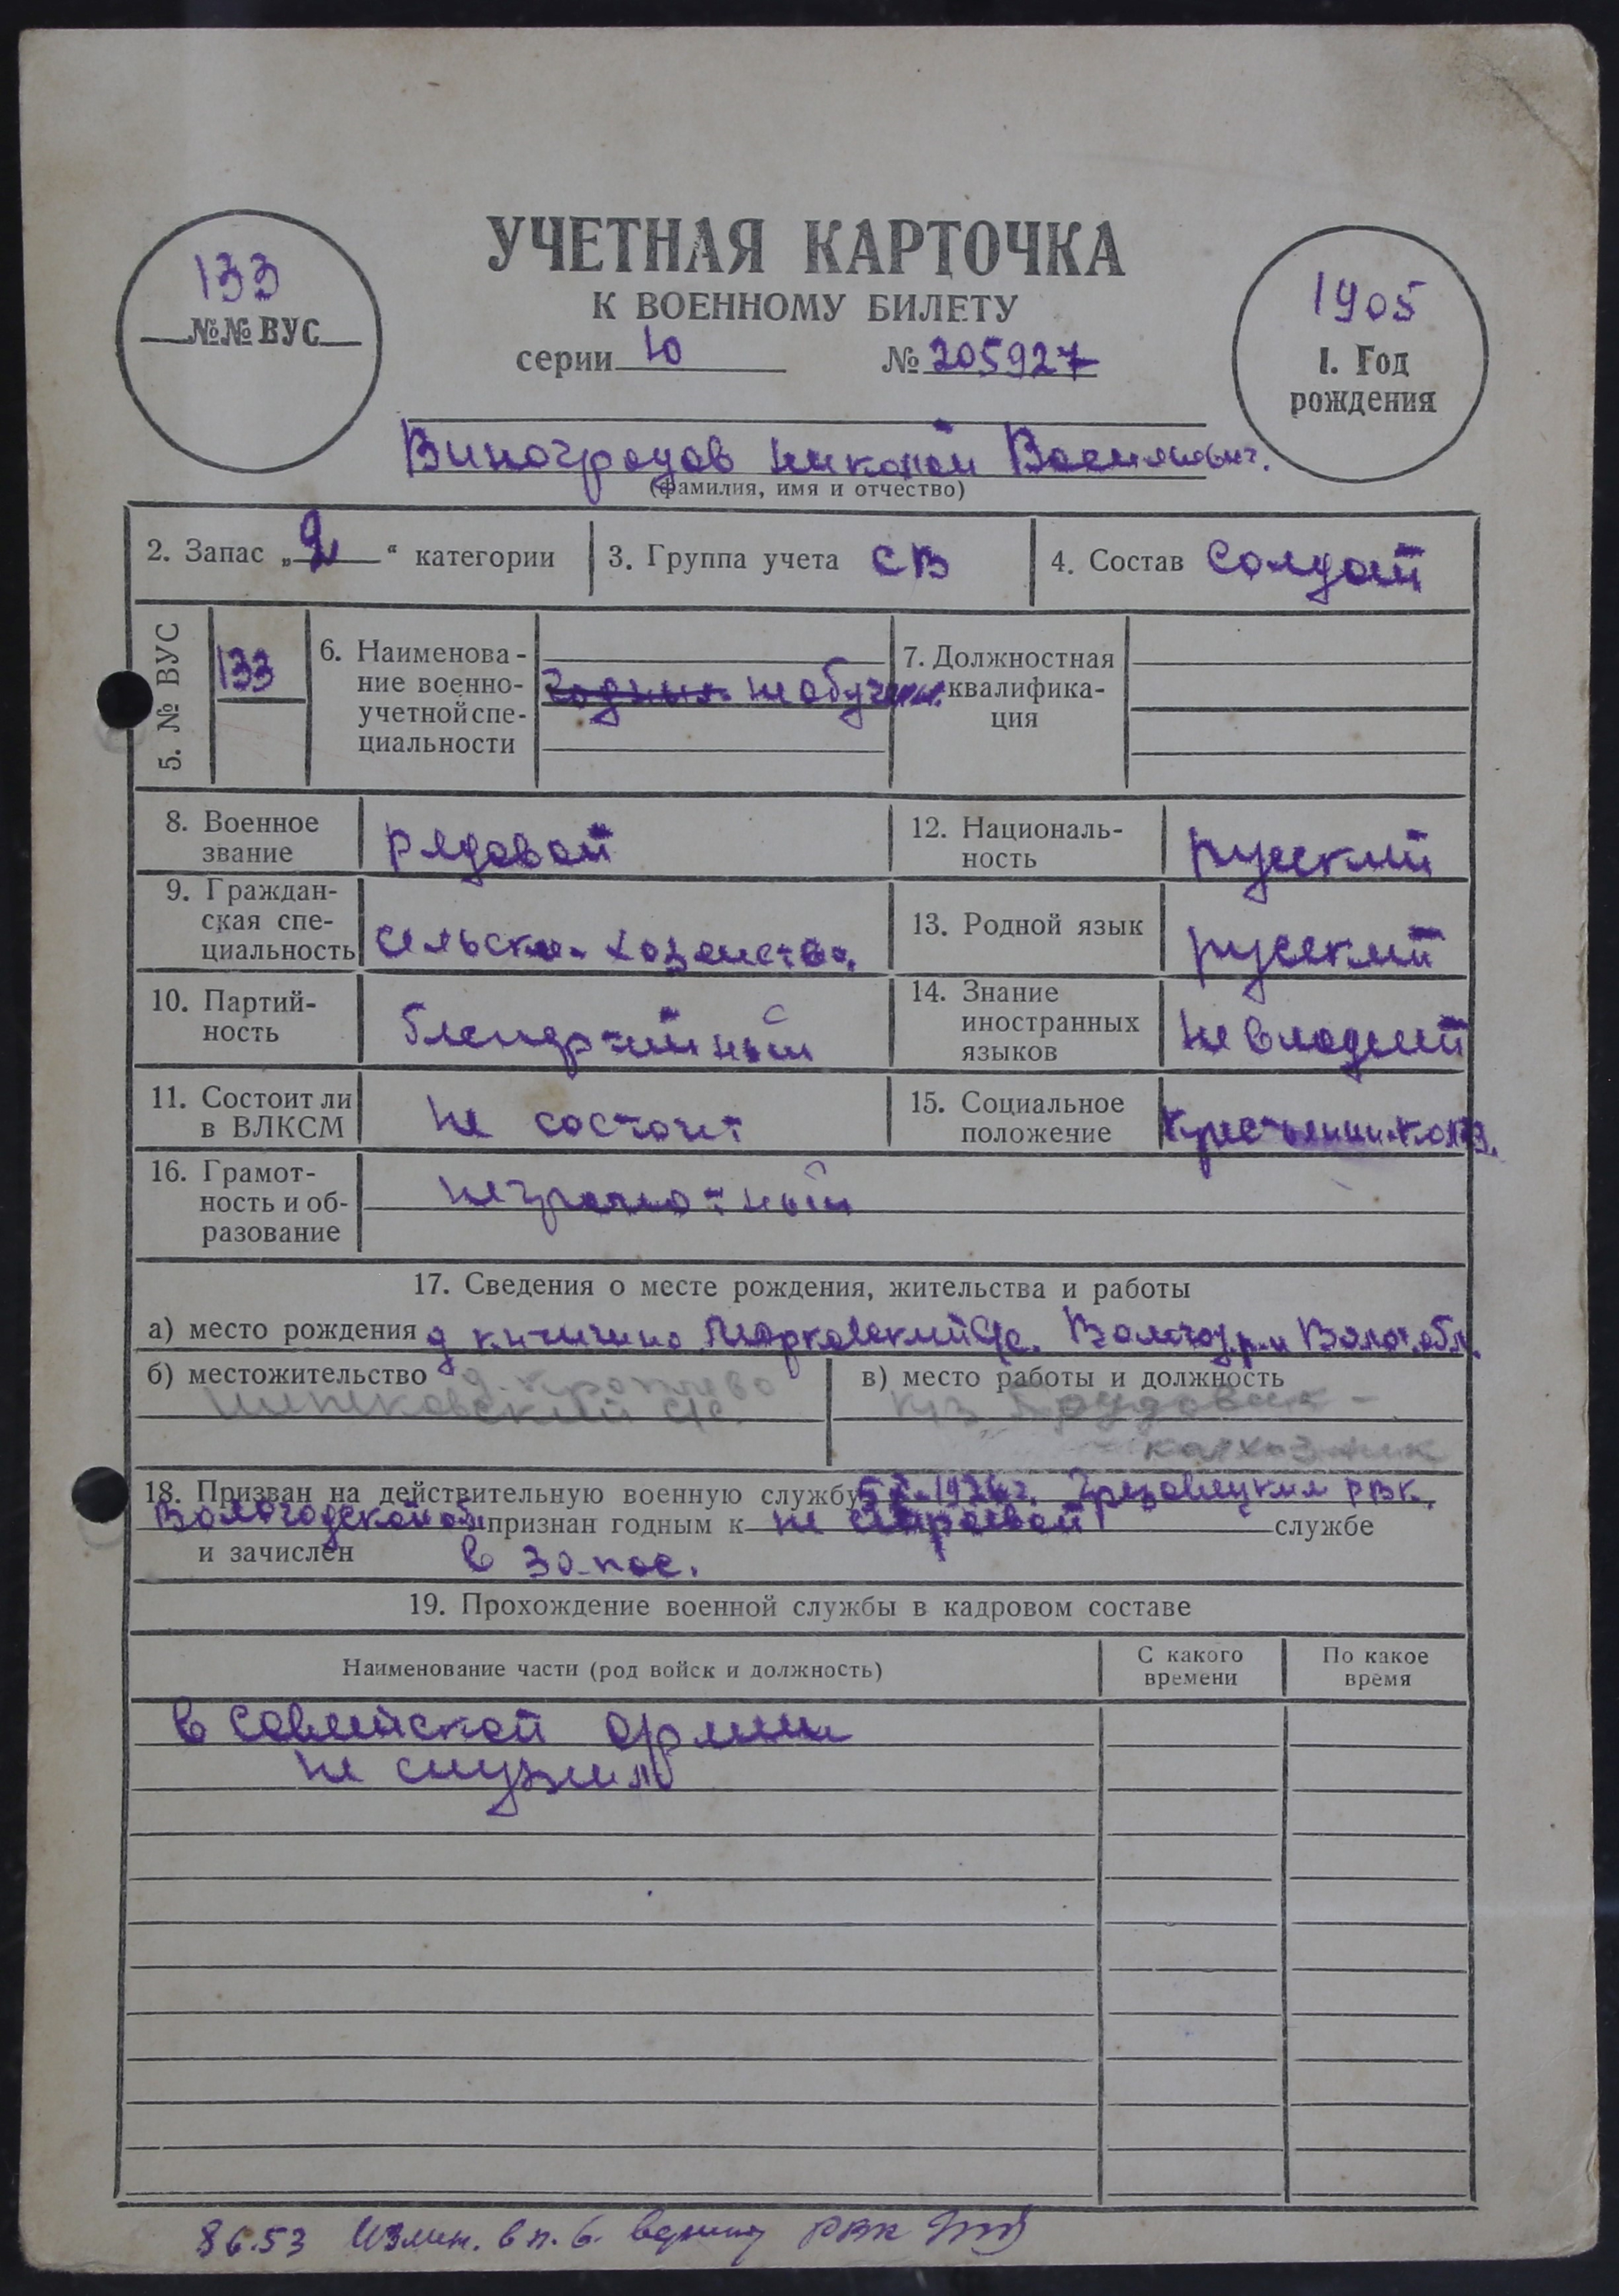 УЧЕТНАЯ КАРТОЧКА
К ВОЕННОМУ БИЛЕТУ
серии Ю № 205927
133
№№ ВУС
1905
1. Год
рождения
Виноградов Николай Васильевич.
(фамилия, имя и отчество)
2. Запас „2“ категории
3. Группа учета СВ
4. Состав Солдат
5. № ВУС
133
6. Наименова-
ние военно-
учетной спе-
циальности
годных необучен.
7. Должностная
квалифика-
ция
8. Военное
звание
рядовой
12. Националь-
ность
русский
9. Граждан-
ская спе-
циальность
сельско-хозяйство.
13. Родной язык
русский
10. Партий-
ность
беспартийный
14. Знание
иностранных
языков
не владеет
11. Состоит ли
в ВЛКСМ
не состоит
15. Социальное
положение
крестьянин-колхоз.
16. Грамот-
ность и об-
разование
неграмотный
17. Сведения о месте рождения, жительства и работы
а) место рождения д Марковский с/с. Волог. р-н Волог. обл.
б) местожительство д.
с/с.
в) место работы и должность
к-з Трудовик -
- колхозник
18. Призван на действительную военную службу Грязовецким РВК.
Вологодской обл признан годным к не строевой службе
и зачислен в запас.
19. Прохождение военной службы в кадровом составе
Наименование части (род войск и должность)
С какого
времени
По какое
время
в Советской Армии
не служил
8 6.53 Измен. в п. 6. РВК